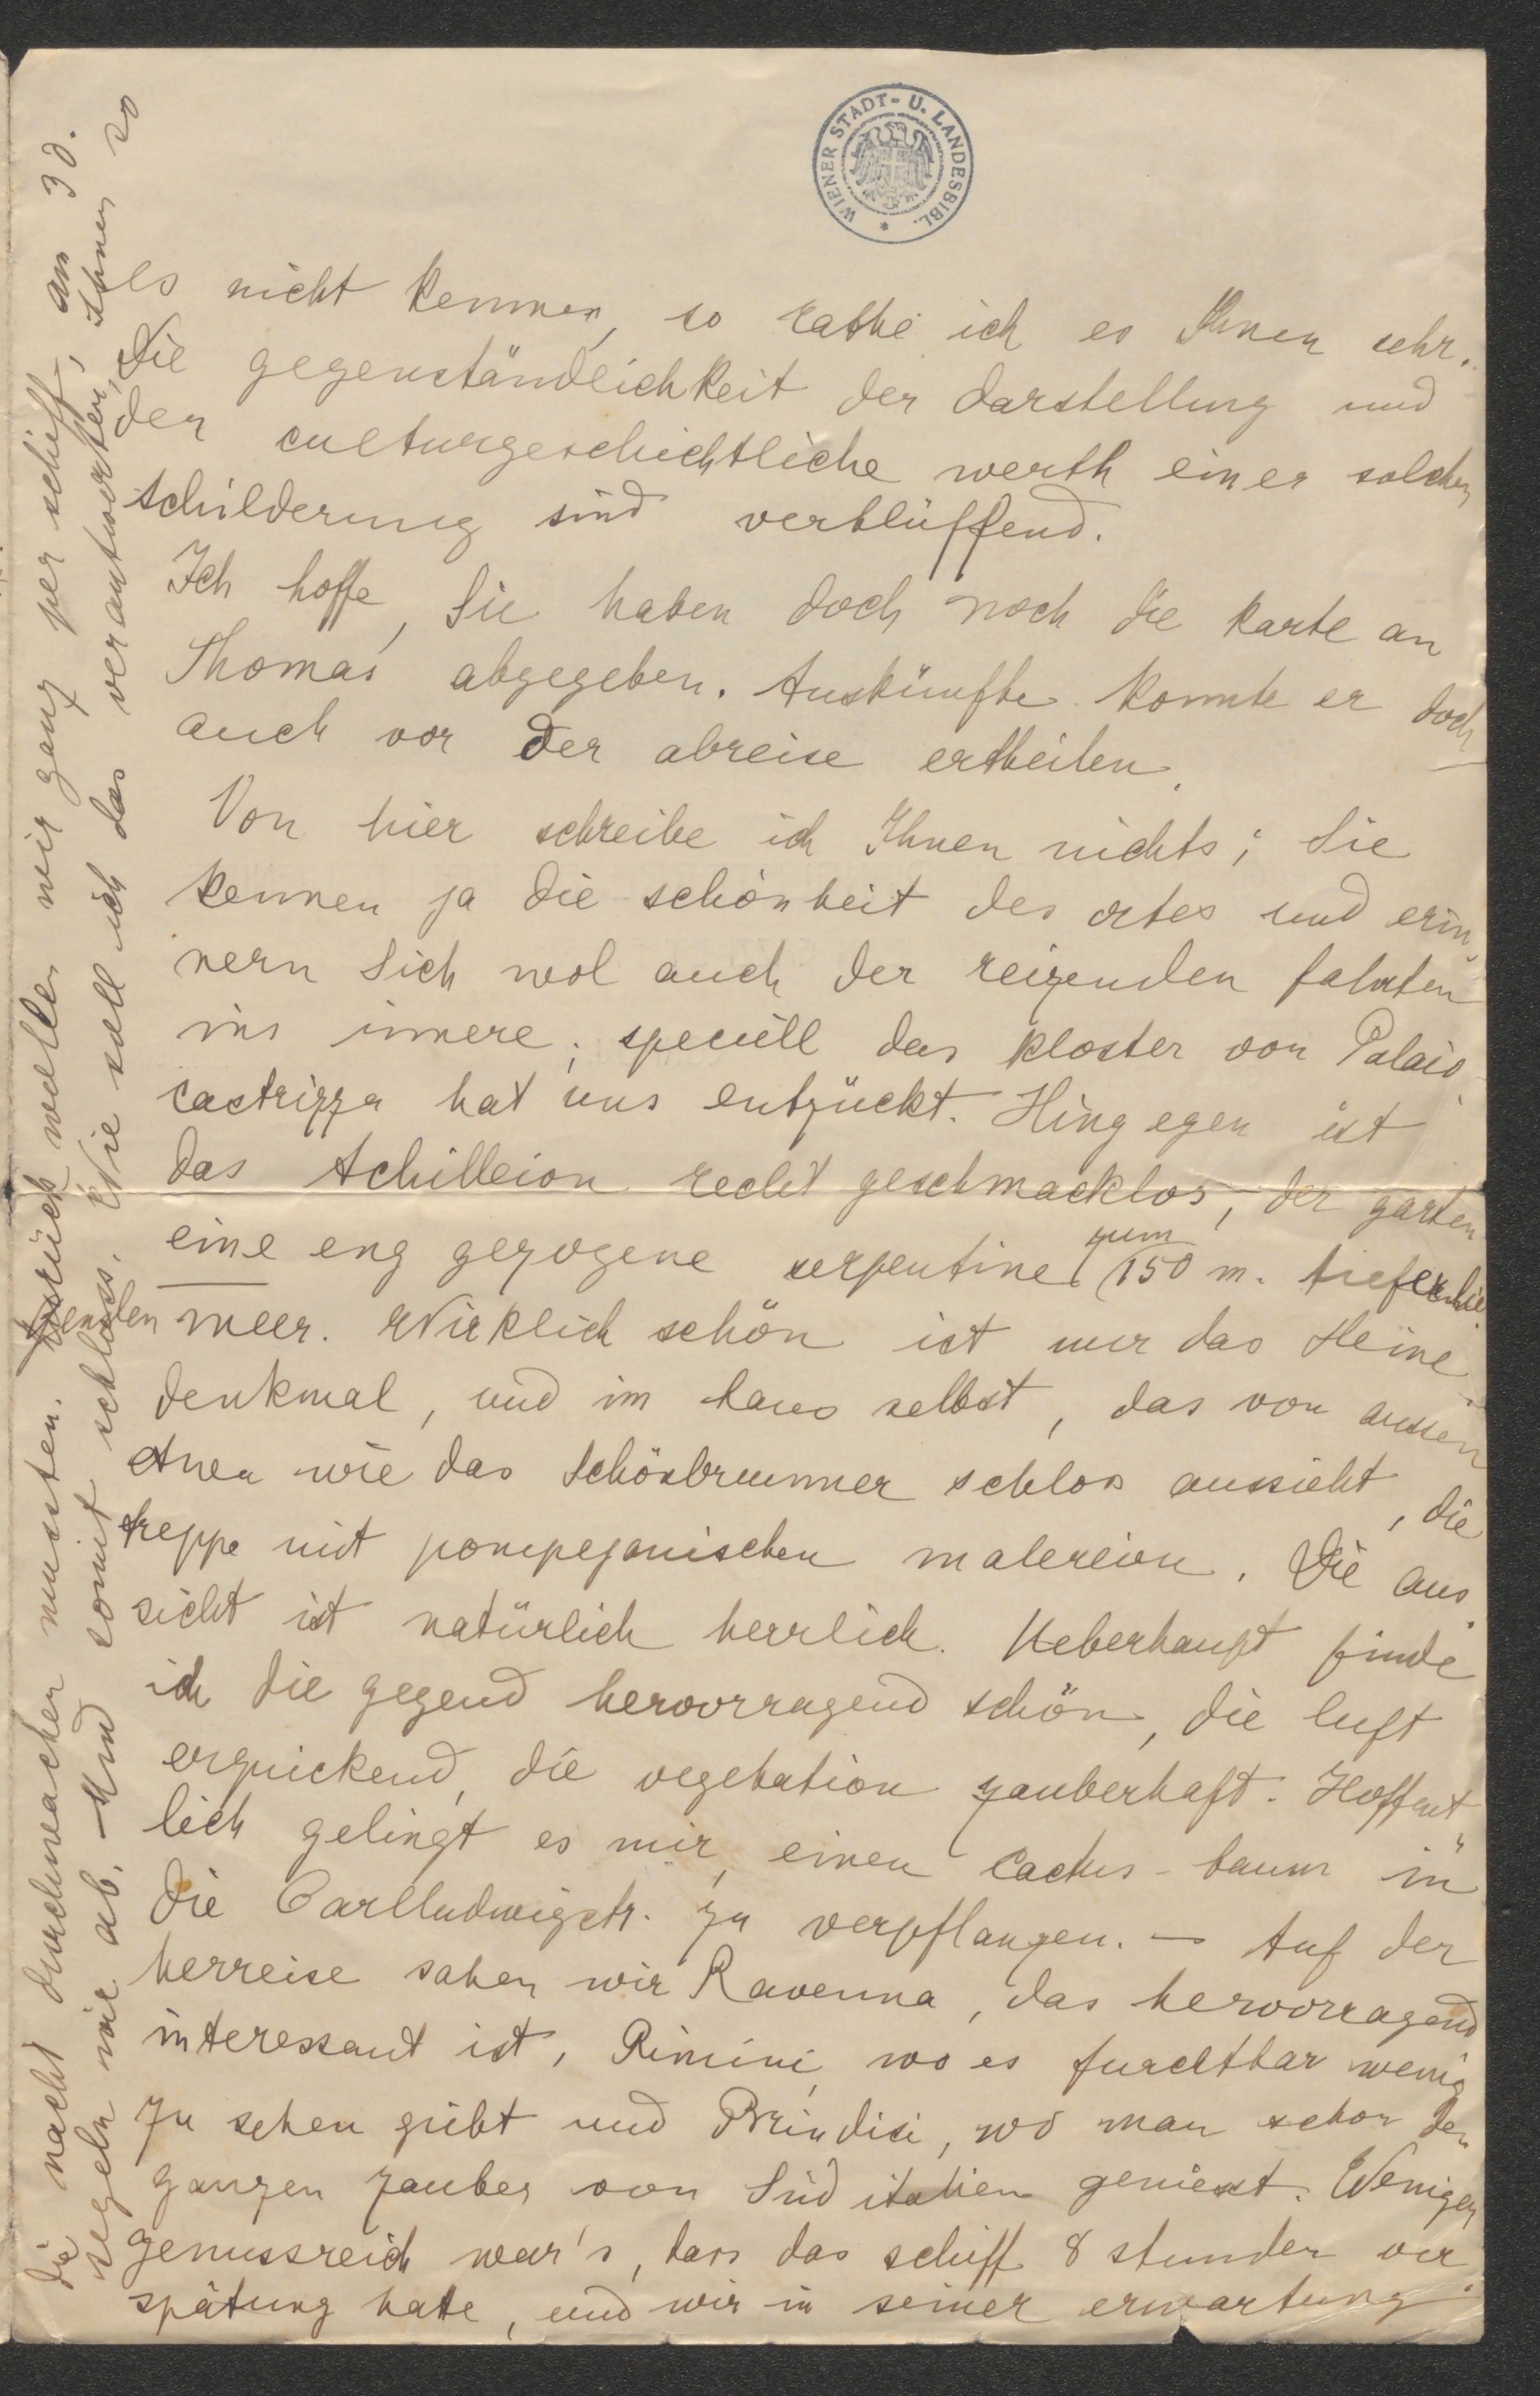 WIENER STADT- U. LANDESBIBL.
es nicht kennen, so rathe ich es Ihnen sehr.
Die gegenständlichkeit der darstellung und
der culturgeschichtliche werth einer solchen
schilderung sind verblüffend.
Ich hoffe, Sie haben doch noch die karte an
Thomas abgegeben. Auskünfte konnte er doch
auch vor der abreise ertheilen.
Von hier schreibe ich Ihnen nichts; Sie
kennen ja die schönheit des ortes und erin-
nern Sich wol auch der reizenden fahrten
ins innere; speciell das kloster von Palaio-
castrizza hat uns entzückt. Hingegen ist
das Achilleion recht geschmacklos, der garten
eine eng gezogene serpentine zum 150 m. tiefer lie-
genden meer. Wirklich schön ist nur das Heine-
denkmal, und im haus selbst, das von aussen
etwa wie das Schönbrunner schloss aussieht, die
treppe mit pompejanischen malereien. Die aus-
sicht ist natürlich herrlich. Ueberhaupt finde
ich die gegend hervorragend schön, die luft
erquickend, die vegetation zauberhaft. Hoffent-
lich gelingt es mir, einen Cactus-baum in
die Carlludwigstr. zu verpflanzen. – Auf der
herreise sahen wir Ravenna, das hervorragend
interessant ist, Rimini, wo es furchtbar wenig
zu sehen gibt und Brindisi, wo man schon den
ganzen zauber von Süditalien geniesst. Weniger
genussreich war's, dass das schiff 8 stunden ver-
spätung hatte, und wir in seiner erwartung
die nacht durchmachen mussten. Zurück wollen wir ganz per schiff, am 30.
segeln wir ab. – Und somit schluss. Wie soll ich das verantworten, Ihnen so